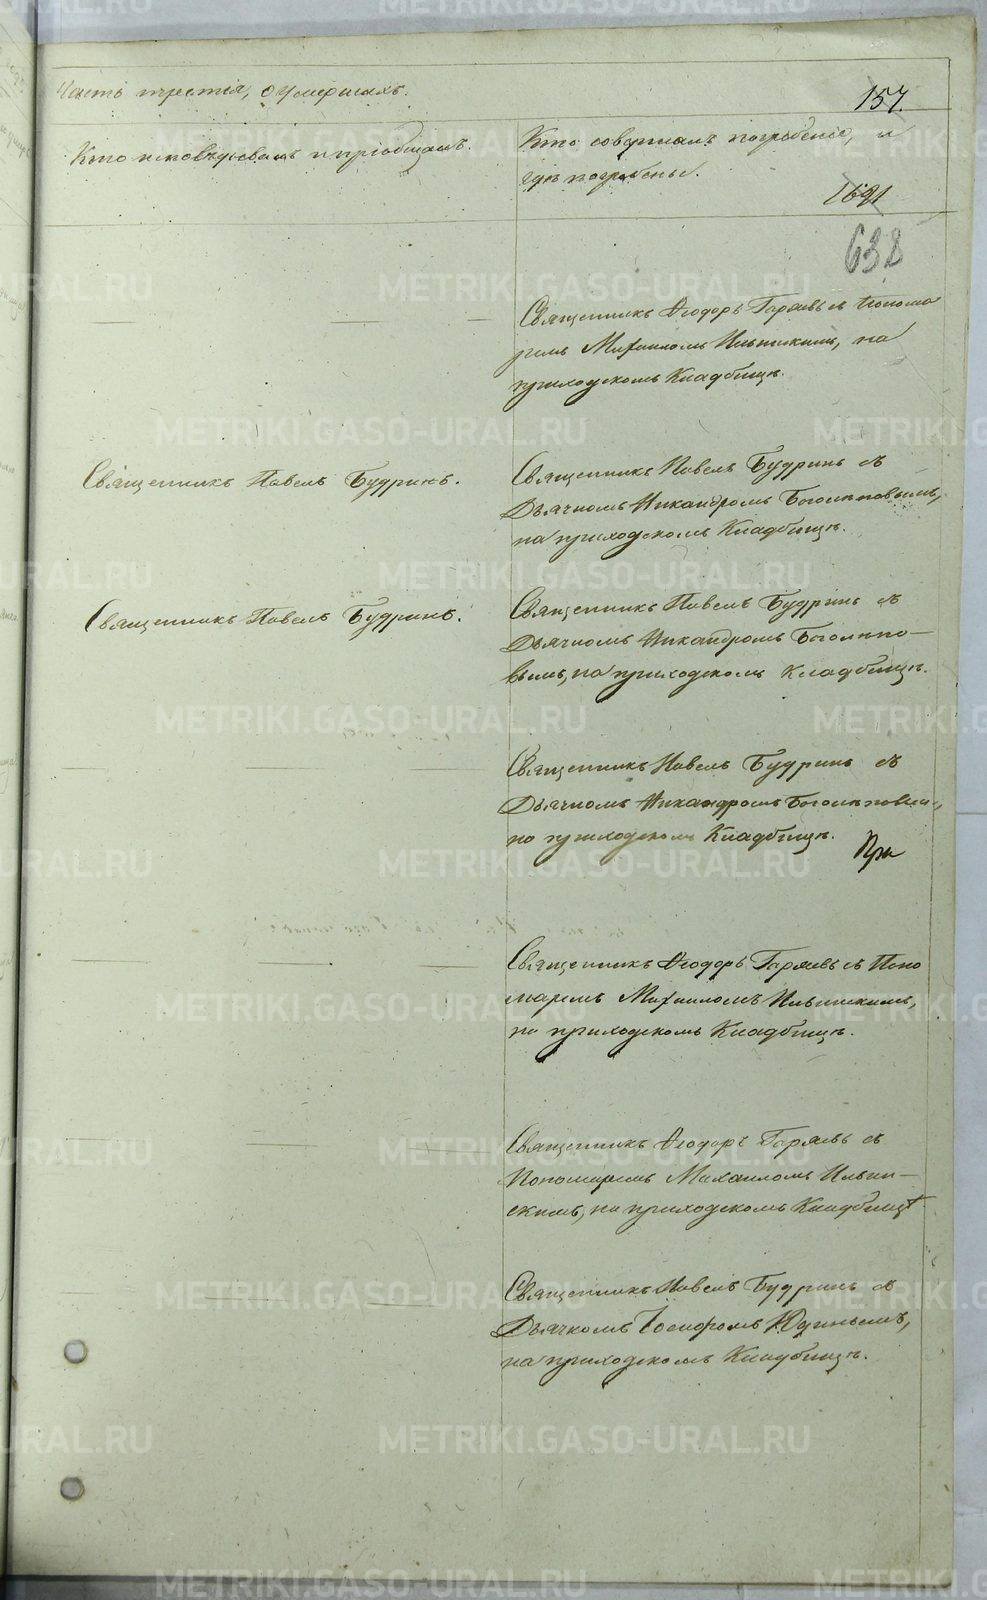 Часть третія, о умершихъ.
157.
Кто исповѣдывалъ и пріобщалъ.
Кто совершалъ погребеніе, и
гдѣ погребены.
1691
638
Священникъ Ѳеодоръ Гаряевъ съ Понома
ремъ Михаиломъ Ильинскимъ, на
приходскомъ Кладбищѣ.
Священникъ Павелъ Будринъ.
Священникъ Павелъ Будринъ съ
Дьячкомъ Никандромъ Боголѣповымъ,
на приходскомъ Кладбищѣ.
Священникъ Павелъ Будринъ.
Священникъ Павелъ Будринъ съ
Дьячкомъ Никандромъ Боголѣпо—
вымъ, на приходскомъ Кладбищѣ.
Священникъ Павелъ Будринъ съ
Дьячкомъ Никандромъ Боголѣповым,
на приходскомъ Кладбищѣ.
При
Священникъ Ѳеодоръ Гаряевъ съ Поно
маремъ Михаиломъ Ильинскимъ,
на приходскомъ Кладбищѣ.
Священникъ Ѳеодоръ Гаряевъ съ
Пономаремъ Михаиломъ Ильин—
скимъ, на приходскомъ Кладбищѣ
Священникъ Павелъ Будринъ съ
Дьячкомъ Юдинымъ,
на приходскомъ Кладбищѣ.
METRIKI.GASO-URAL.RU